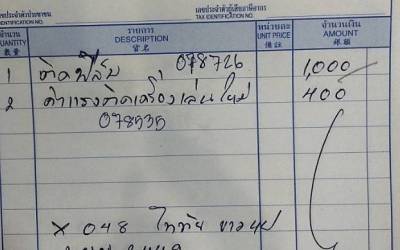 เลขประจำตัวประชาชน เลขประจำตัวผู้เสียภาษีอากร
IDENTIFICATION NO. TAX IDENTIFICATION NO.
จำนวน รายการ หน่วยละ จำนวนเงิน
QUANTITY DESCRIPTION UNIT PRICE AMOUNT
數量 貨名 備註 銀額
1 ติดฟิล์ม 078726 1,000
2 ค่าแรงติดเครื่องเล่นใหม่ 400
078535
X 048